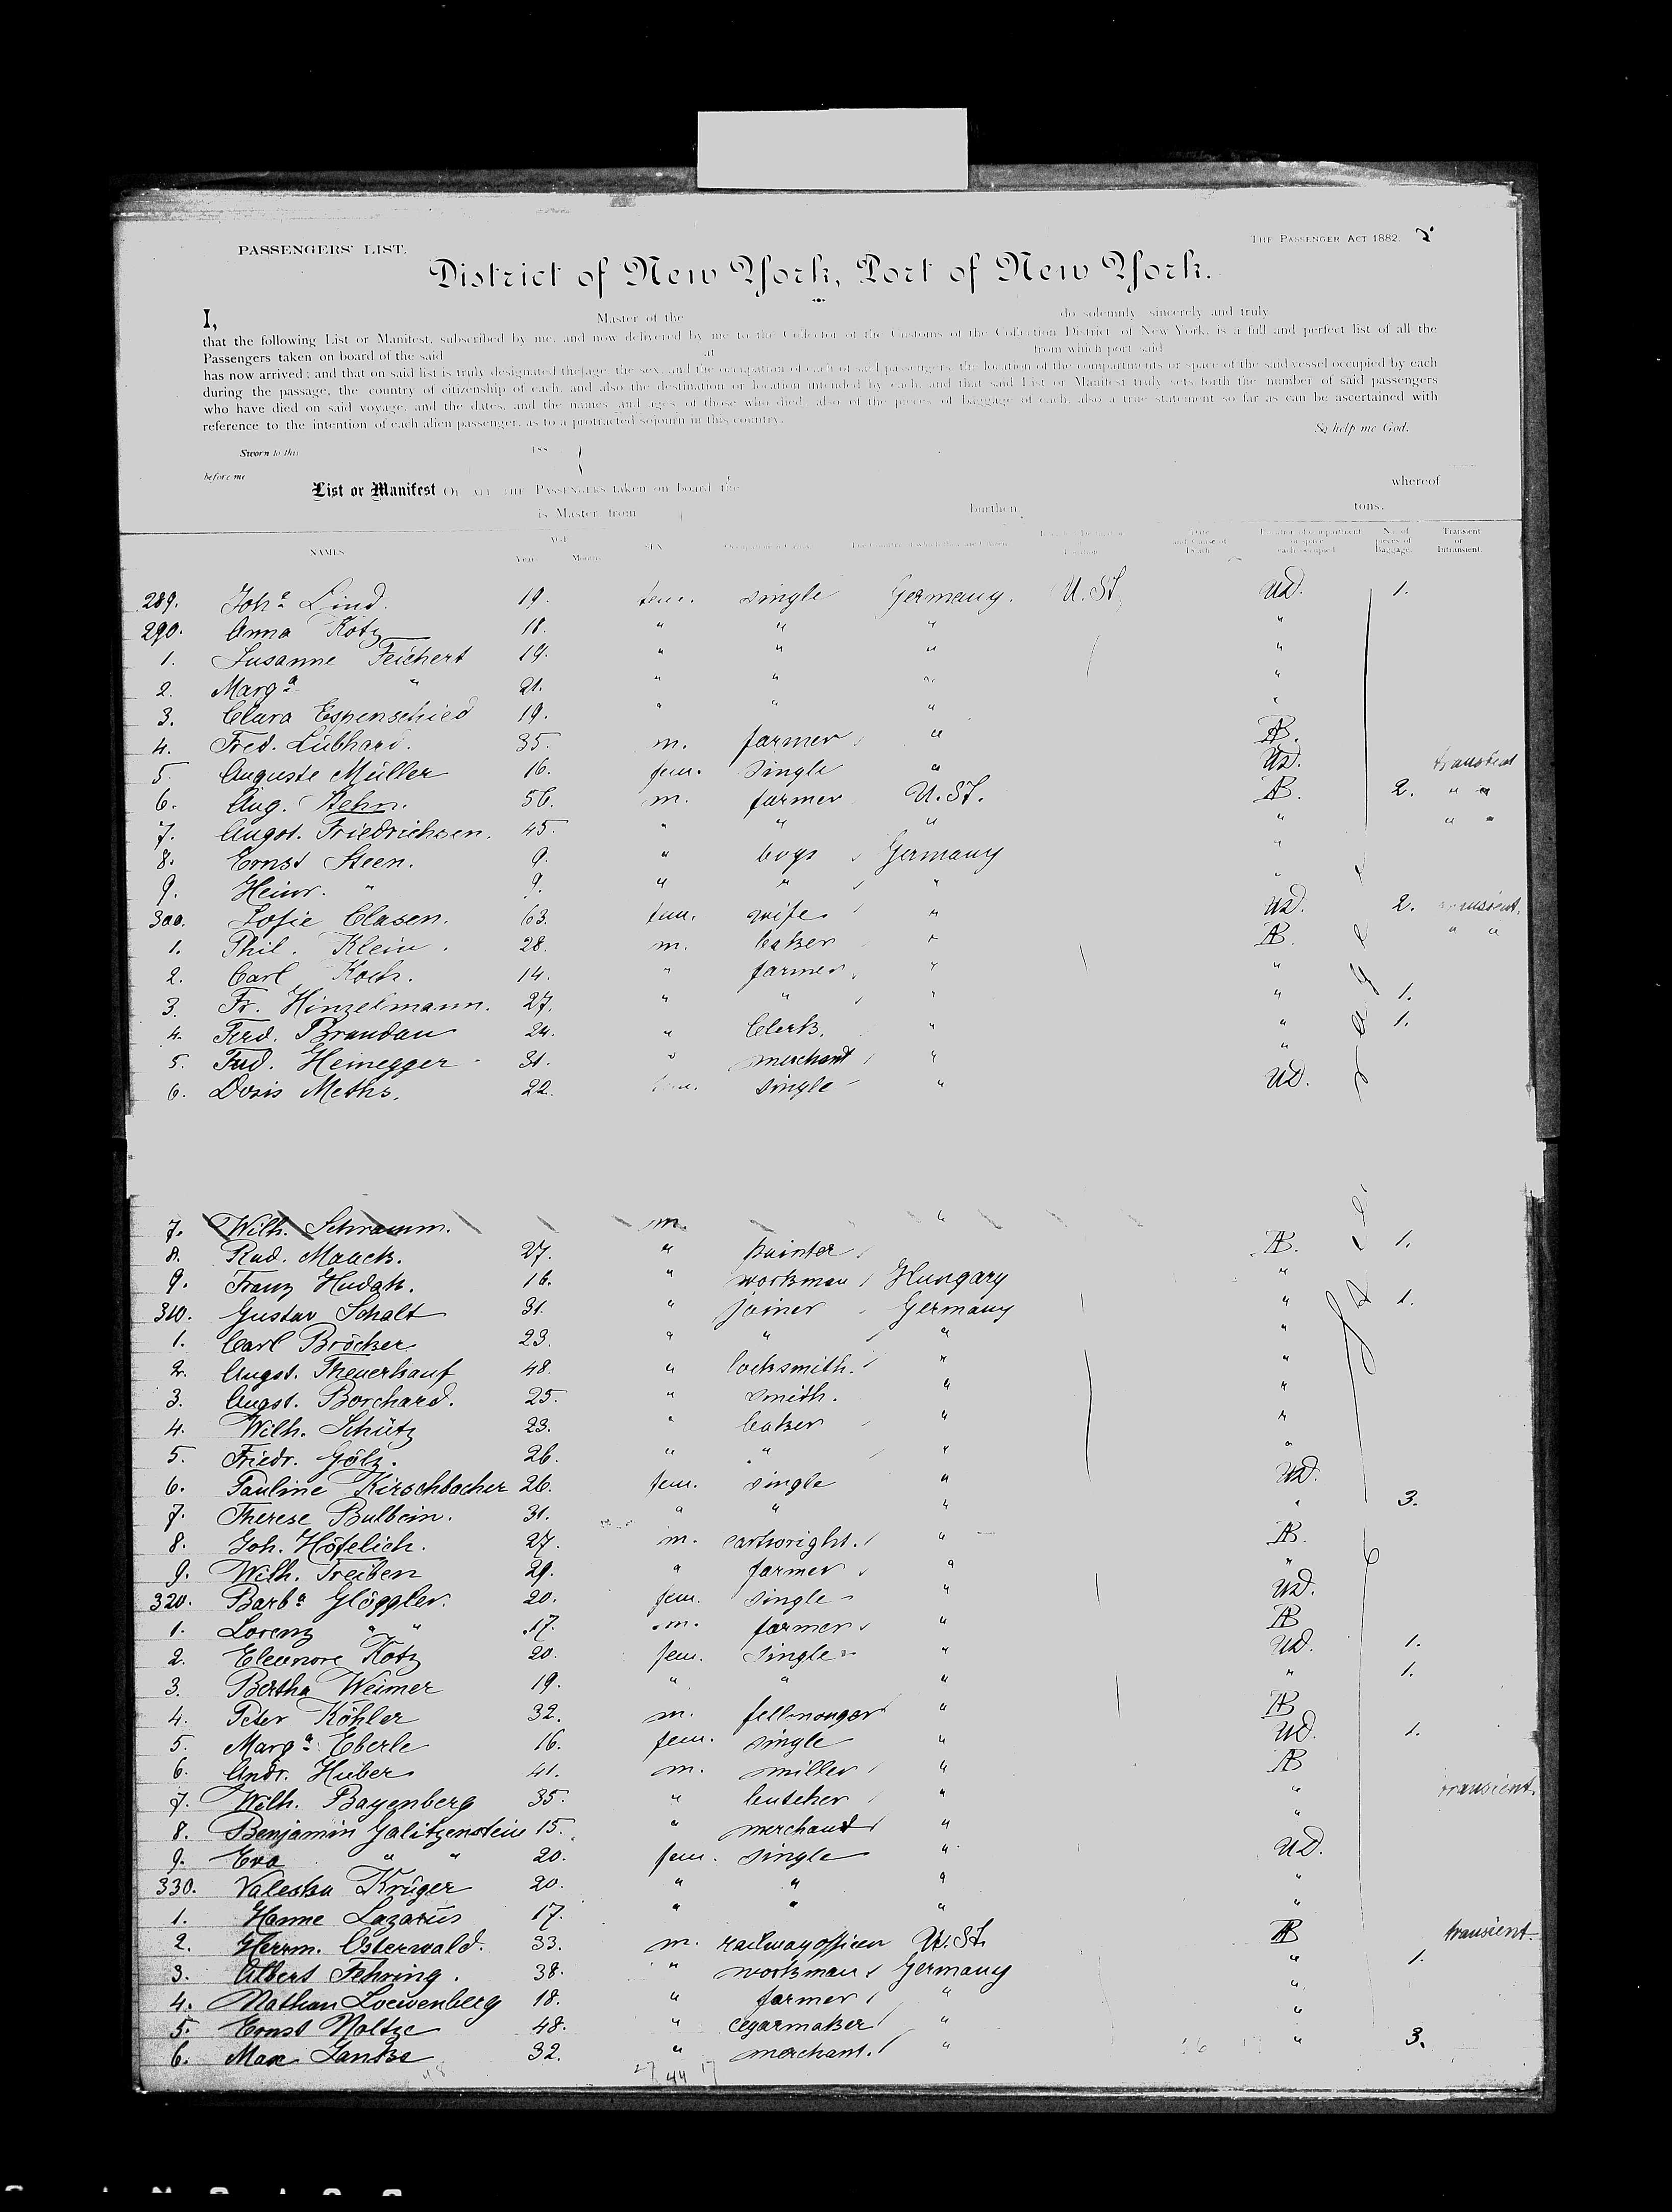 PASSENGERS' LIST.
THE PASSENGER ACT 1882.
District of New York, Port of New York.
I, Master of the do solemnly, sincerely and truly
that the following List or Manifest, subscribed by me, and now delivered by me to the Collector of the Customs of the Collection District of New York, is a full and perfect list of all the
Passengers taken on board of the said at from which port said
has now arrived; and that on said list is truly designated the age, the sex, and the occupation of each of said passengers, the location of the compartments or space of the said vessel occupied by each
during the passage, the country of citizenship of each, and also the destination or location intended by each, and that said List or Manifest truly sets forth the number of said passengers
who have died on said voyage, and the dates, and the names and ages of those who died, also of the pieces of baggage of each, also a true statement so far as can be ascertained with
reference to the intention of each alien passenger, as to a protracted sojourn in this country.
So help me God.
Sworn to this 188
before me
List or Manifest OF ALL THE PASSENGERS taken on board the whereof
is Master, from burthen tons.
NAMES AGE Years Months SEX Date and Cause of Death No. of pieces of Baggage. Transient or Intransient.
289. Joha Lind. 19. fem. single Germany. U. St. UD. 1.
290. Anna Kotz 18. " " " "
1. Susanne Feichert 19. " " " "
2. Marga " 21. " " " "
3. Clara Espenschied 19. " " " "
4. Fred. Lübhard. 35. m. farmer " AB.
5. Auguste Müller 16. fem. single " UD. transient
6. Aug. Stehn. 56. m. farmer U. St. AB. 2. " "
7. Augst. Friedrichsen. 45. " " " " " "
8. Ernst Steen. 9. " boys Germany "
9. Heinr. " 9. " " " "
300. Sofie Clasen. 63. fem. wife " UD. 2. transient.
1. Phil. Klein. 28. m. baker " AB. " "
2. Carl Koch. 14. " farmer " "
3. Fr. Hinzelmann. 27. " " " " 1.
4. Ferd. Brandau 24. " Clerk. " " 1.
5. Ferd. Heinegger 31. " merchant " "
6. Doris Meths. 22. fem. single " UD.
7. Wilh. Schramm. m. "
8. Rud. Maack. 27. " painter AB. 1.
9. Franz Hudak. 16. " workman Hungary "
310. Gustav Schalt 31. " joiner Germany " 1.
1. Carl Bröcker 23. " " " "
2. Augst. Theuerkauf 48. " locksmith. " "
3. Augst. Borchard. 25. " smith. " "
4. Wilh. Schütz 23. " baker " "
5. Friedr. Gölz. 26. " " " "
6. Pauline Kirschbacher 26. fem. single " UD.
7. Therese Bulbein. 31. " " " " 3.
8. Joh. Höfelich. 27. m. cartwright. " AB.
9. Wilh. Treiben 29. " farmer " "
320. Barba Glöggler. 20. fem. single " UD.
1. Lorenz " " 17. m. farmer " AB
2. Eleonore Kotz 20. fem. single " UD. 1.
3. Bertha Weimer 19. " " " " 1.
4. Peter Köhler 32. m. fellmonger " AB
5. Marga Eberle 16. fem. single " UD. 1.
6. Andr. Huber 41. m. miller " AB
7. Wilh. Bayenberg 35. " butcher " " transient.
8. Benjamin Galitzenstein 15. " merchant " "
9. Eva " " 20. fem. single " UD.
330. Valeska Krüger 20. " " " "
1. Hanne Lazarus 17. " " " "
2. Herrm. Osterwald. 33. m. railway officer U. St. AB transient.
3. Albert Fehring. 38. " workman Germany " 1.
4. Nathan Loewenberg 18. " farmer " "
5. Ernst Noltze 48. " cegarmaker " "
6. Max Janke 32. " merchant. " " 3.
27 44 17